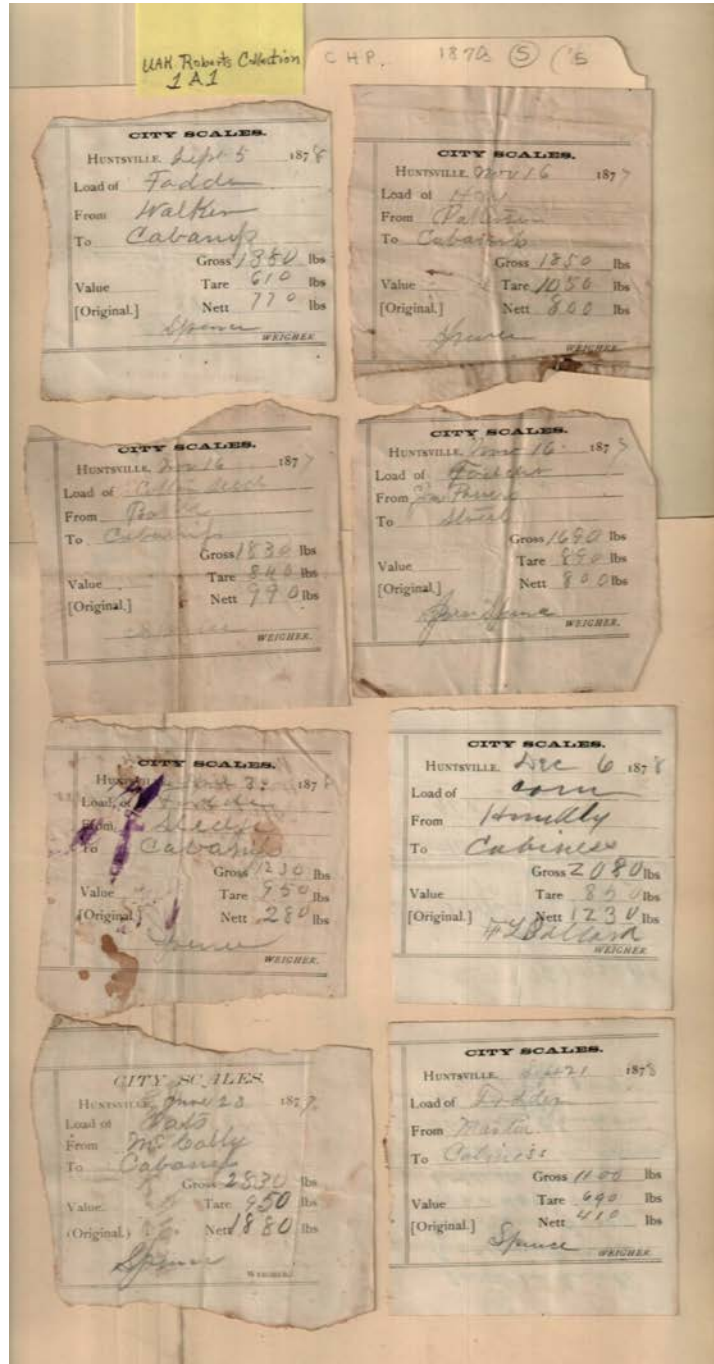 UAH Roberts Collection
1 A 1
C H P. 1878 5
CITY SCALES.
HUNTSVILLE, Sept 5 1878
Load of Fodder
From Walker
To Cabaniss
Gross 1380 lbs
Value Tare 610 lbs
[Original.] Nett 770 lbs
Spence
WEIGHER.
CITY SCALES.
HUNTSVILLE, Nov 16 1877
Load of Hay
From Patterson
To Cabaniss
Gross 1850 lbs
Value Tare 1050 lbs
[Original.] Nett 800 lbs
Spence
WEIGHER.
CITY SCALES.
HUNTSVILLE, Nov 16 1877
Load of Cotton Seed
From
To Cabaniss
Gross 1830 lbs
Value Tare 840 lbs
[Original.] Nett 990 lbs
Spence
WEIGHER.
CITY SCALES.
HUNTSVILLE, Nov 16 187
Load of Fodder
From Powers
To
Gross 1690 lbs
Value Tare 890 lbs
[Original.] Nett 800 lbs
WEIGHER.
CITY SCALES.
HUNTSVILLE, 1878
Load of Fodder
From
To Cabaniss
Gross 1230 lbs
Value Tare 950 lbs
[Original.] Nett 280 lbs
Spence
WEIGHER.
CITY SCALES.
HUNTSVILLE, Dec 6 1878
Load of corn
From
To Cabiness
Gross 2080 lbs
Value Tare 850 lbs
[Original.] Nett 1230 lbs
Ballard
WEIGHER.
CITY SCALES.
HUNTSVILLE, June 23 1877
Load of Oats
From McCally
To Cabaniss
Gross 2830 lbs
Value Tare 950 lbs
(Original.) Nett 1880 lbs
Spence
WEIGHER
CITY SCALES.
HUNTSVILLE, Sept 21 1878
Load of Fodder
From Martin
To Cabiness
Gross 1100 lbs
Value Tare 690 lbs
[Original.] Nett 410 lbs
Spence
WEIGHER